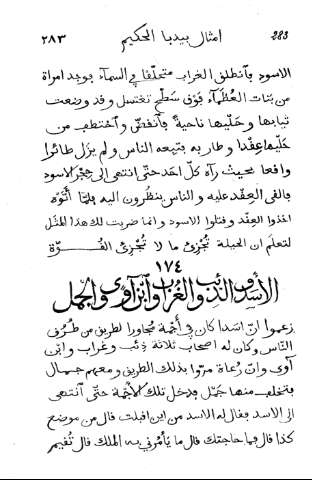 283 امثال بيدبا الحكيم ٢٨٣
الاسود فانطلق الغراب متحلقا في السمآء فوجد امراة
من بنات العظمآء فوق سطح تغتسل وقد وضعت
ثيابها وحليها ناحية فانقضّ واختطف من
حليها عقدا وطار به فتبعه الناس ولم يزل طائرا
واقعا بحيث رآه كل احد حتى انتهى الى جحر الاسود
فالقى العقد عليه والناس ينظرون اليه فلمّا أتوه
اخذوا العقد وقتلوا الاسود وانما ضربت لك هذا المثل
لتعلم ان الحيلة تجزئ ما لا تجزئ القوة
١٧٤
الأسد والذئب والغراب وابن آوى والجمل
زعموا انّ اسدا كان في أجمة مجاورا لطريق من طرق
الناس وكان له اصحاب ثلاثة ذئب وغراب وابن
آوى وانّ رعاة مروا بذلك الطريق ومعهم جمال
فتخلف منها جمل فدخل تلك الأجمة حتى انتهى
الى الاسد فقال له الاسد من اين اقبلت قال من موضع
كذا قال فما حاجتك قال ما يأمرني به الملك قال تقيم